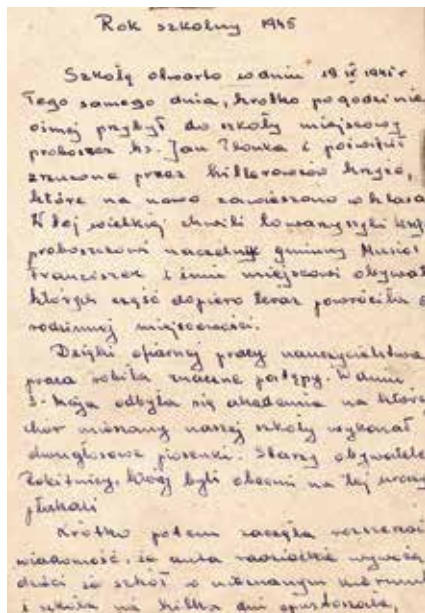 Rok szkolny 1945
Szkołę otwarto w dniu 19 IV 1945 r
Tego samego dnia, krótko po godzinie
ósmej przybył do szkoły miejscowy
proboszcz ks. Jan i poświęcił
zrzucone przez hitlerowców krzyże,
które na nowo zawieszono w klasa
W tej wielkiej chwili towarzyszyli
proboszczowi naczelnik gminny Musioł
Franciszek i inni miejscowi obywat
których część dopiero teraz powróciła
rodzinnej miejscowości.
Dzięki ofiarnej pracy nauczycielstwa
praca robiła znaczne postępy. W dniu
3-maja odbyła się akademia na które
chór mieszany naszej szkoły wykonał
dwugłosowe piosenki. Starzy obywatele
Rokitnicy, którzy byli obecni na tej urocz
płakali
Krótko potem zaczęła rozszerzać
wiadomość, że auta radzieckie wywożą
dzieci ze szkół w nieznanym kierunk
i szkoła na kilka dni opustoszała.